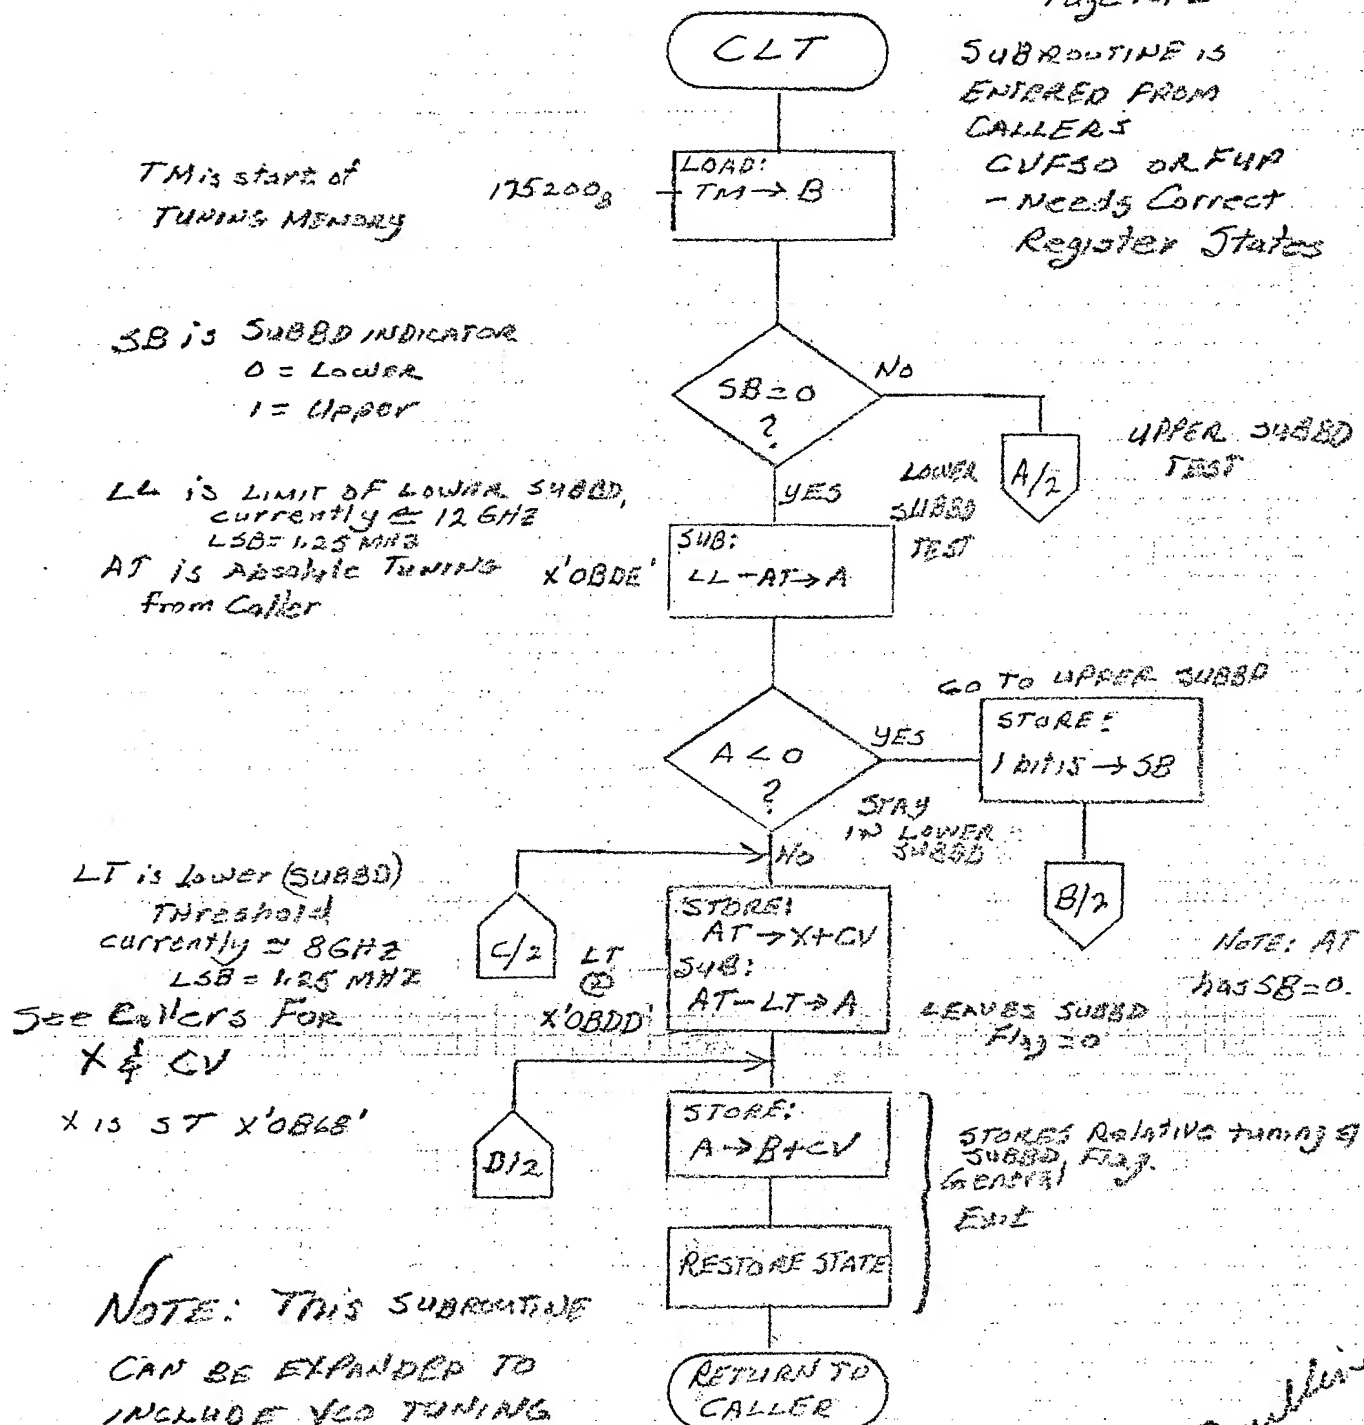 CLT
SUBROUTINE IS
ENTERED FROM
CALLERS
CVFSO OR F4P
- Needs Correct
Register States
TM is start of
TUNING MEMORY
175200₈
LOAD:
TM → B
SB is SUBBD INDICATOR
0 = Lower
1 = Upper
SB = 0
?
NO
YES
A/2
UPPER SUBBD
TEST
LOWER
SUBBD
TEST
LL is LIMIT OF LOWER SUBBD,
currently ≅ 12 GHZ
LSB = 1.25 MHZ
AT is Absolute TUNING
from Caller
X'0BDE'
SUB:
LL - AT → A
A < 0
?
YES
GO TO UPPER SUBBD
STORE:
1 bit15 → SB
B/2
STAY
IN LOWER
SUBBD
NO
LT is Lower (SUBBD)
Threshold
currently ≅ 8GHZ
LSB = 1.25 MHZ
See Callers FOR
X & CV
X IS ST X'0B68'
C/2
LT
@
X'0BDD'
STORE:
AT → X+CV
SUB:
AT - LT → A
NOTE: AT
has SB=0.
LEAVES SUBBD
Flag = 0
D/2
STORE:
A → B+CV
RESTORE STATE
STORES Relative tuning &
SUBBD Flag.
General
Exit
NOTE: This SUBROUTINE
CAN BE EXPANDED TO
INCLUDE VCO TUNING
RETURN TO
CALLER